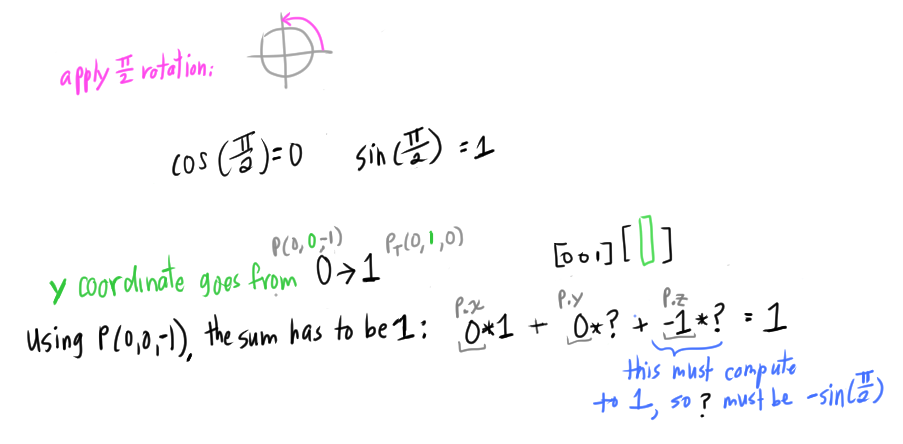 apply π/2 rotation:
cos(π/2)=0 sin(π/2)=1
P(0,0,-1) P_T(0,1,0)
y coordinate goes from 0→1
[001][ ]
P.x P.y P.z
Using P(0,0,-1), the sum has to be 1: 0*1 + 0*? + -1*? = 1
this must compute
to 1, so ? must be -sin(π/2)